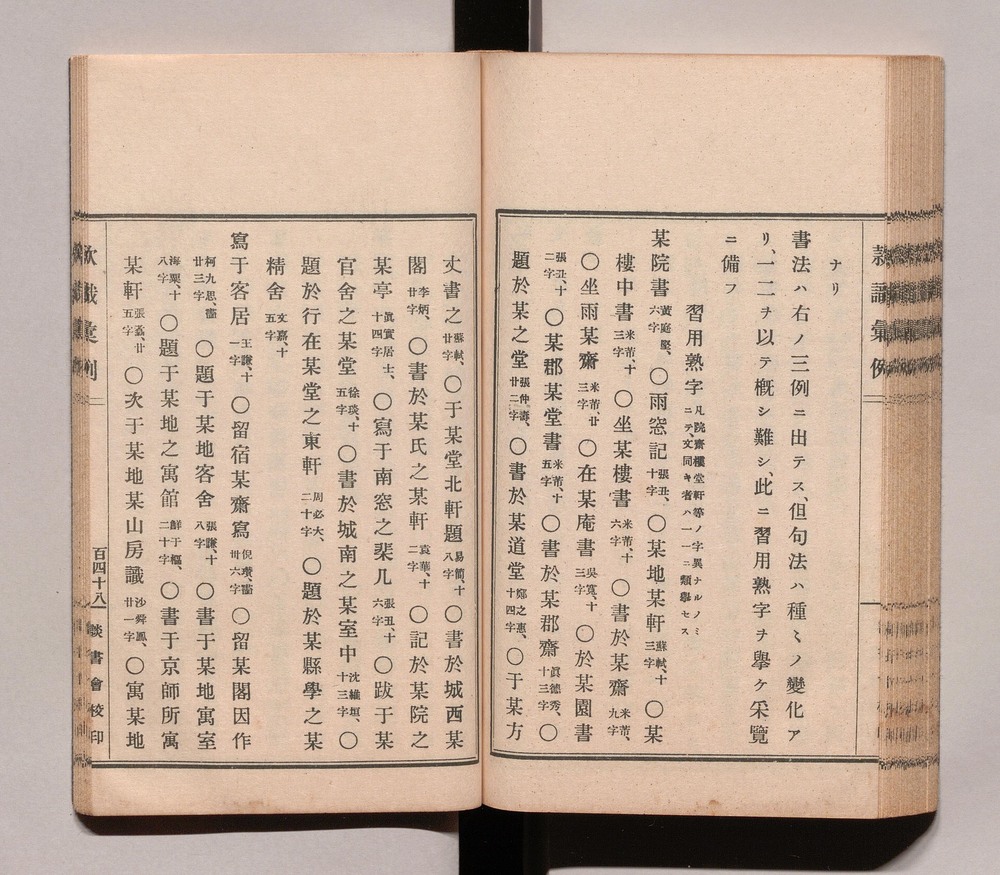 ナリ
書法ハ右ノ三例ニ出テス、但句法ハ種〻ノ變化ア
リ、一二ヲ以テ概シ難シ、此ニ習用熟字ヲ擧ケ采覽
ニ備フ
習用熟字 凡院齋樓堂軒等ノ字異ナルノミニテ、文同キ者ハ一一ニ類擧セス
某院書 黃庭堅、六字 〇雨窓記 張丑、十字 〇某地某軒 蘇軾、十三字 〇某
樓中書 米芾、十三字 〇坐某樓書 米芾、十六字 〇書於某齋 米芾、九字
〇坐雨某齋 米芾、廿三字 〇在某庵書 吳寬、十三字 〇於某園書
張丑、十二字 〇某郡某堂書 米芾、十五字 〇書於某郡齋 眞德秀、十三字 〇
題於某之堂 張仲濤、廿二字 〇書於某道堂 鄭之惠、十四字 〇于某方
丈書之 蘇軾、廿字 〇于某堂北軒題 易簡、十八字 〇書於城西某
閣 李炳、廿字 〇書於某氏之某軒 袁華、十二字 〇記於某院之
某亭 眞實居士、十四字 〇寫于南窓之棐几 張丑、十六字 〇跋于某
官舍之某堂 徐琰、十五字 〇書於城南之某室中 沈維垣、十三字 〇
題於行在某堂之東軒 周必大、二十字 〇題於某縣學之某
精舍 文嘉、十五字
寫于客居 王謙、十一字 〇留宿某齋寫 倪瓚、卅六字 〇留某閣因作
柯九思、廿三字 〇題于某地客舍 張謙、十八字 〇書于某地寓室
海粟、十八字 〇題于某地之寓館 鮮于樞、二十字 〇書于京師所寓
某軒 張、廿五字 〇次于某地某山房識 沙舜鳳、廿一字 〇寓某地
百四十八
談書會校印